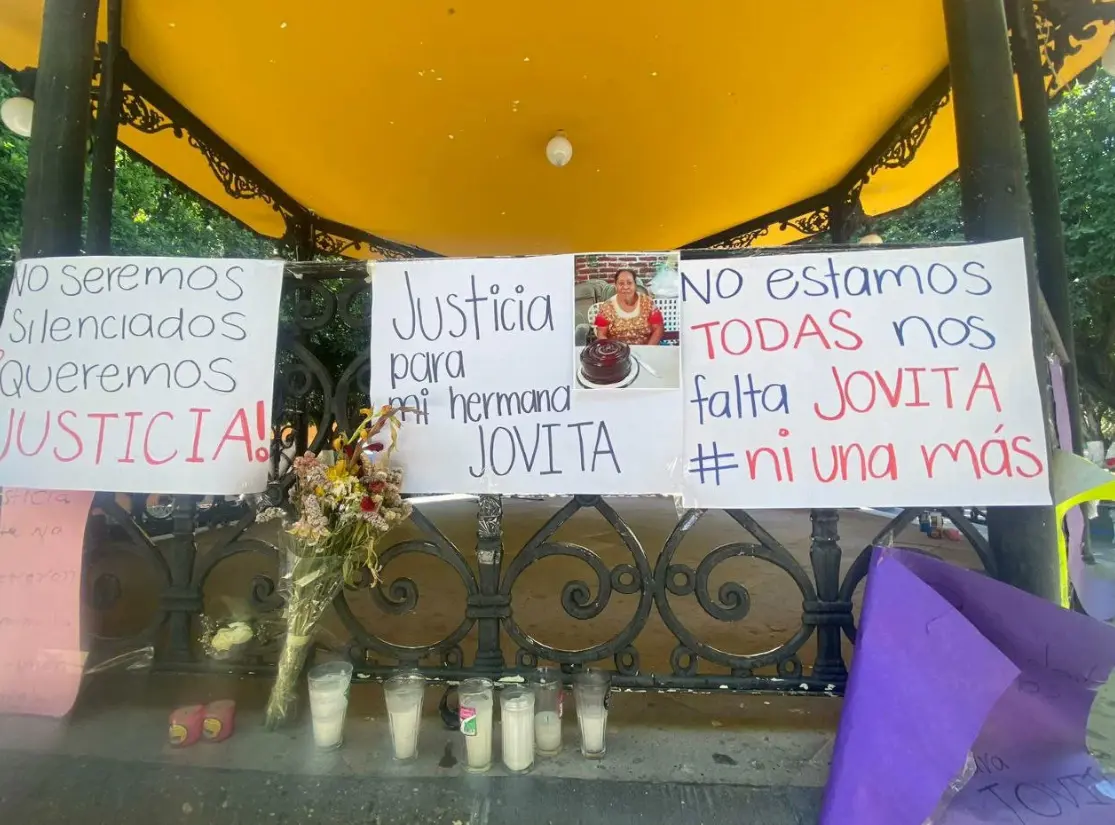 NO SEREMOS
SILENCIADOS
QUEREMOS
JUSTICIA!
Justicia
para
mi hermana
JOVITA
NO estamos
TODAS nos
falta JOVITA
#ni una más